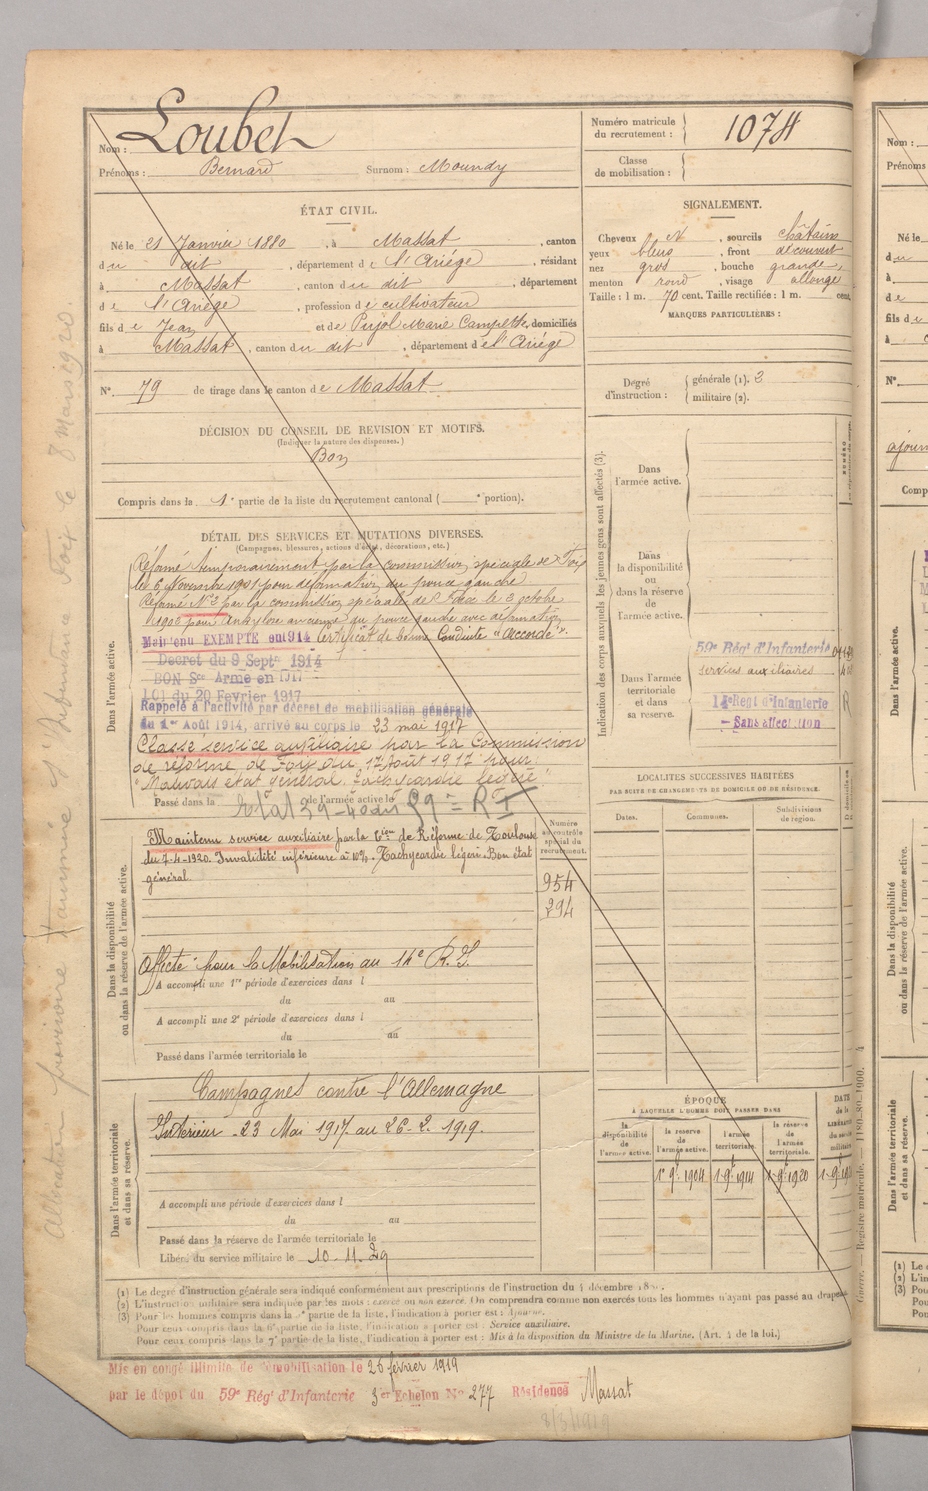 Nom : Loubet
Prénoms : Bernard Surnom : Moundy
ÉTAT CIVIL.
Né le 21 Janvier 1880, à Massat, canton
du dit, département de l'Ariège, résidant
à Massat, canton du dit, département
de l'Ariège, profession de cultivateur
fils de Jean et de Pujol Marie Campette, domiciliés
à Massat, canton du dit, département de l'Ariège
N° 79 de tirage dans le canton de Massat
DÉCISION DU CONSEIL DE REVISION ET MOTIFS.
(Indiquer la nature des dispenses.)
Bon
Compris dans la 1e partie de la liste du recrutement cantonal ( e portion).
DÉTAIL DES SERVICES ET MUTATIONS DIVERSES.
(Campagnes, blessures, actions d'éclat, décorations, etc.)
Dans l'armée active.
Réformé temporairement par la commission spéciale de Foix
le 6 Novembre 1901 pour déformation du pouce gauche
Réformé N° 2 par la commission spéciale de Foix le 3 octobre
1902 pour ankylose ancienne du pouce gauche avec déformation
Maintenu EXEMPTE en 1914 Certificat de bonne Conduite "Accordé".
Decret du 9 Septe 1914
BON Sce Armé en 1917
LOI du 20 Fevrier 1917
Rappelé à l'activité par décret de mobilisation générale
du 1er Août 1914, arrivé au corps le 23 mai 1917
Classé service auxiliaire par la Commission
de réforme de Foix du 17 Août 1917 pour:
"Mauvais état général. Tachycardie légère"
Passé dans la de l'armée active le
59e R I
Dans la disponibilité
ou dans la réserve de l'armée active.
Maintenu service auxiliaire par la Cion de Réforme de Toulouse
du 7-4-1920. Invalidité inférieure à 10%. Tachycardie légère. Bon état
général.
Numéro
au contrôle
spécial du
recrutement.
954
294
Affecté pour la Mobilisation au 14e R.I.
A accompli une 1re période d'exercices dans l
du au
A accompli une 2e période d'exercices dans l
du au
Passé dans l'armée territoriale le
Dans l'armée territoriale
et dans sa réserve.
Campagnes contre l'Allemagne
Intérieur - 23 Mai 1917 au 26-2-1919.
A accompli une période d'exercices dans l
du au
Passé dans la réserve de l'armée territoriale le
Libéré du service militaire le 10-11-29
Numéro matricule
du recrutement : 1074
Classe
de mobilisation :
SIGNALEMENT.
Cheveux N, sourcils châtains
yeux bleus, front découvert
nez gros, bouche grande,
menton rond, visage allongé
Taille : 1 m. 70 cent. Taille rectifiée : 1 m. cent.
MARQUES PARTICULIÈRES :
Degré
d'instruction :
générale (1). 3
militaire (2).
Indication des corps auxquels les jeunes gens sont affectés (3).
Dans
l'armée active.
Dans
la disponibilité
ou
dans la réserve
de
l'armée active.
Dans l'armée
territoriale
et dans
sa réserve.
59e Rég' d'Infanterie
services auxiliaires
14e Regt d'Infanterie
- Sans affection
LOCALITÉS SUCCESSIVES HABITÉES
PAR SUITE DE CHANGEMENTS DE DOMICILE OU DE RÉSIDENCE.
Dates.
Communes.
Subdivisions
de région.
ÉPOQUE
À LAQUELLE L'HOMME DOIT PASSER DANS
la
disponibilité
de
l'armée active.
la réserve
de
l'armée active.
l'armée
territoriale.
la réserve
de
l'armée
territoriale.
DATE
de la
LIBÉRATION
du service
militaire
1er 9e 1904
1-9e 1914
1-9e 1920
(1) Le degré d'instruction générale sera indiqué conformément aux prescriptions de l'instruction du 4 décembre
(2) L'instruction militaire sera indiquée par les mots : exercé ou non exercé. On comprendra comme non exercés tous les hommes n'ayant pas passé au drapeau
(3) Pour les hommes compris dans la partie de la liste, l'indication à porter est : Ajourné.
Pour ceux compris dans la 6e partie de la liste, l'indication à porter est : Service auxiliaire.
Pour ceux compris dans la 7e partie de la liste, l'indication à porter est : Mis à la disposition du Ministre de la Marine. (Art. 4 de la loi.)
Mis en congé illimité de démobilisation le 26 février 1919
par le dépot du 59e Rég' d'Infanterie 3er Echelon No 277 Résidence Massat
Guerre. — Registre matricule.
Nom :
Prénoms :
Né le
à
de
fils de
à
N°